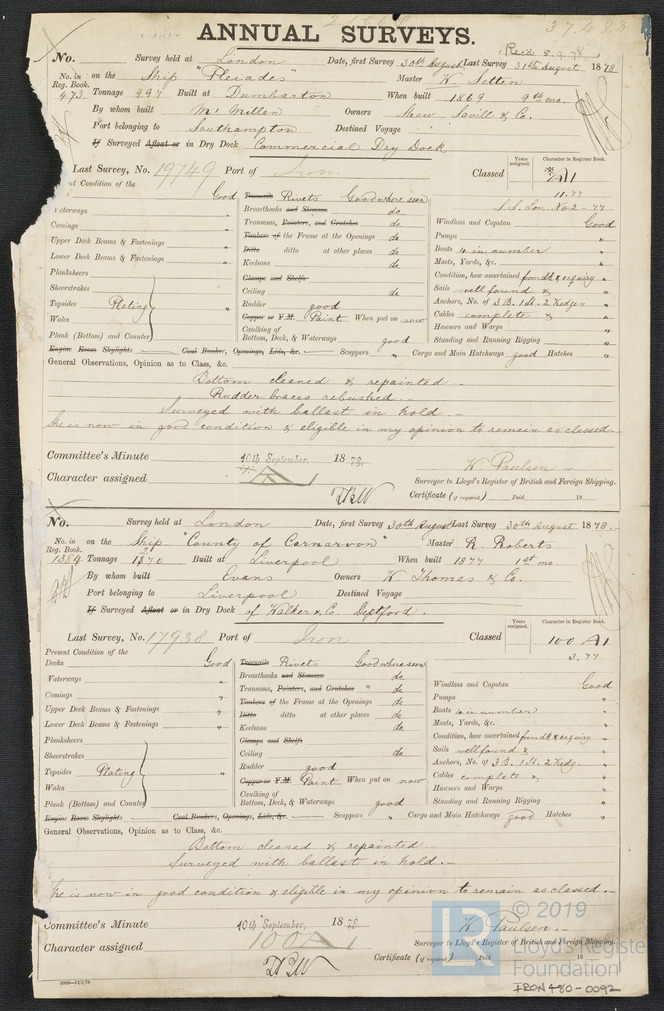 37683
ANNUAL SURVEYS.
Rec'd 5.9.78
No. Survey held at London Date, first Survey 30th August Last Survey 31st August 1878
No. in Reg. Book. 473 on the Ship "Pleiades" Master W. Setten
Tonnage 997 Built at Dumbarton When built 1869 9th mo.
By whom built McMillan Owners Shaw, Savill & Co.
Port belonging to Southampton Destined Voyage
If Surveyed Afloat or in Dry Dock Commercial Dry Dock
Last Survey, No. 19749 Port of Iron. Classed Years assigned. Character in Register Book. A1
11.77
S.S. Lon. No 2-77
Condition of the
Good
Waterways "
Comings "
Upper Deck Beams & Fastenings "
Lower Deck Beams & Fastenings "
Planksheers
Sheerstrakes
Topsides Plating "
Wales
Plank (Bottom) and Counter
Treenails Rivets Good where seen
Breasthooks and Stemson do
Transoms, Pointers, and Crutches do
Timbers of the Frame at the Openings do
Ditto ditto at other places do
Keelsons do
Clamps and Shelfs
Ceiling do
Rudder good
Copper or Y.M. Paint When put on now
Caulking of Bottom, Deck, & Waterways good
Windlass and Capstan Good
Pumps "
Boats 4 in number "
Masts, Yards, &c. "
Condition, how ascertained from dk & enquiry "
Sails well found & "
Anchors, No. of 3 B. 1 St. 2 Kedges "
Cables complete & "
Hawsers and Warps "
Standing and Running Rigging "
Engine Room Skylights Coal Bunker, Openings, Lids, &c. Scuppers " Cargo and Main Hatchways good Hatches "
General Observations, Opinion as to Class, &c.
Bottom cleaned & repainted.
Rudder braces rebushed.
Surveyed with ballast in hold.
She is now in good condition & eligible in my opinion to remain as classed.
Committee's Minute 10th September, 1878.
W. Paulson
Character assigned A1
Surveyor to Lloyd's Register of British and Foreign Shipping.
Certificate (if required) Paid 18
No. Survey held at London Date, first Survey 30th August Last Survey 30th August 1878.
No. in Reg. Book. 1384 on the Ship "County of Carnarvon" Master R. Roberts
Tonnage Built at Liverpool When built 1877 1st mo.
By whom built Evans Owners W. Thomas & Co.
Port belonging to Liverpool Destined Voyage
If Surveyed Afloat or in Dry Dock of Walker & Co. Deptford.
Last Survey, No. 17938 Port of Iron Classed Years assigned. Character in Register Book. 100 A1
3,77
Present Condition of the
Decks Good
Waterways "
Comings "
Upper Deck Beams & Fastenings "
Lower Deck Beams & Fastenings "
Planksheers
Sheerstrakes
Topsides Plating "
Wales
Plank (Bottom) and Counter
Treenails Rivets Good where seen
Breasthooks and Stemson do
Transoms, Pointers, and Crutches "
Timbers of the Frame at the Openings do
Ditto ditto at other places do
Keelsons do
Clamps and Shelfs
Ceiling do
Rudder good
Copper or Y.M. Paint When put on now
Caulking of Bottom, Deck, & Waterways good
Windlass and Capstan Good
Pumps "
Boats 4 in number "
Masts, Yards, &c. "
Condition, how ascertained from dk & enquiry "
Sails well found & "
Anchors, No. of 3 B. 1 St. 2 Kedg. "
Cables complete & "
Hawsers and Warps "
Standing and Running Rigging "
Engine Room Skylights Coal Bunkers, Openings, Lids, &c. Scuppers " Cargo and Main Hatchways good Hatches "
General Observations, Opinion as to Class, &c.
Bottom cleaned & repainted
Surveyed with ballast in hold.
She is now in good condition & eligible in my opinion to remain as classed.
Committee's Minute 10th September, 1878
W. Paulson.
Character assigned 100 A1
Surveyor to Lloyd's Register of British and Foreign Shipping.
Certificate (if required) Paid 18
LR © 2019
Lloyd's Register
Foundation
IRON 480-0092